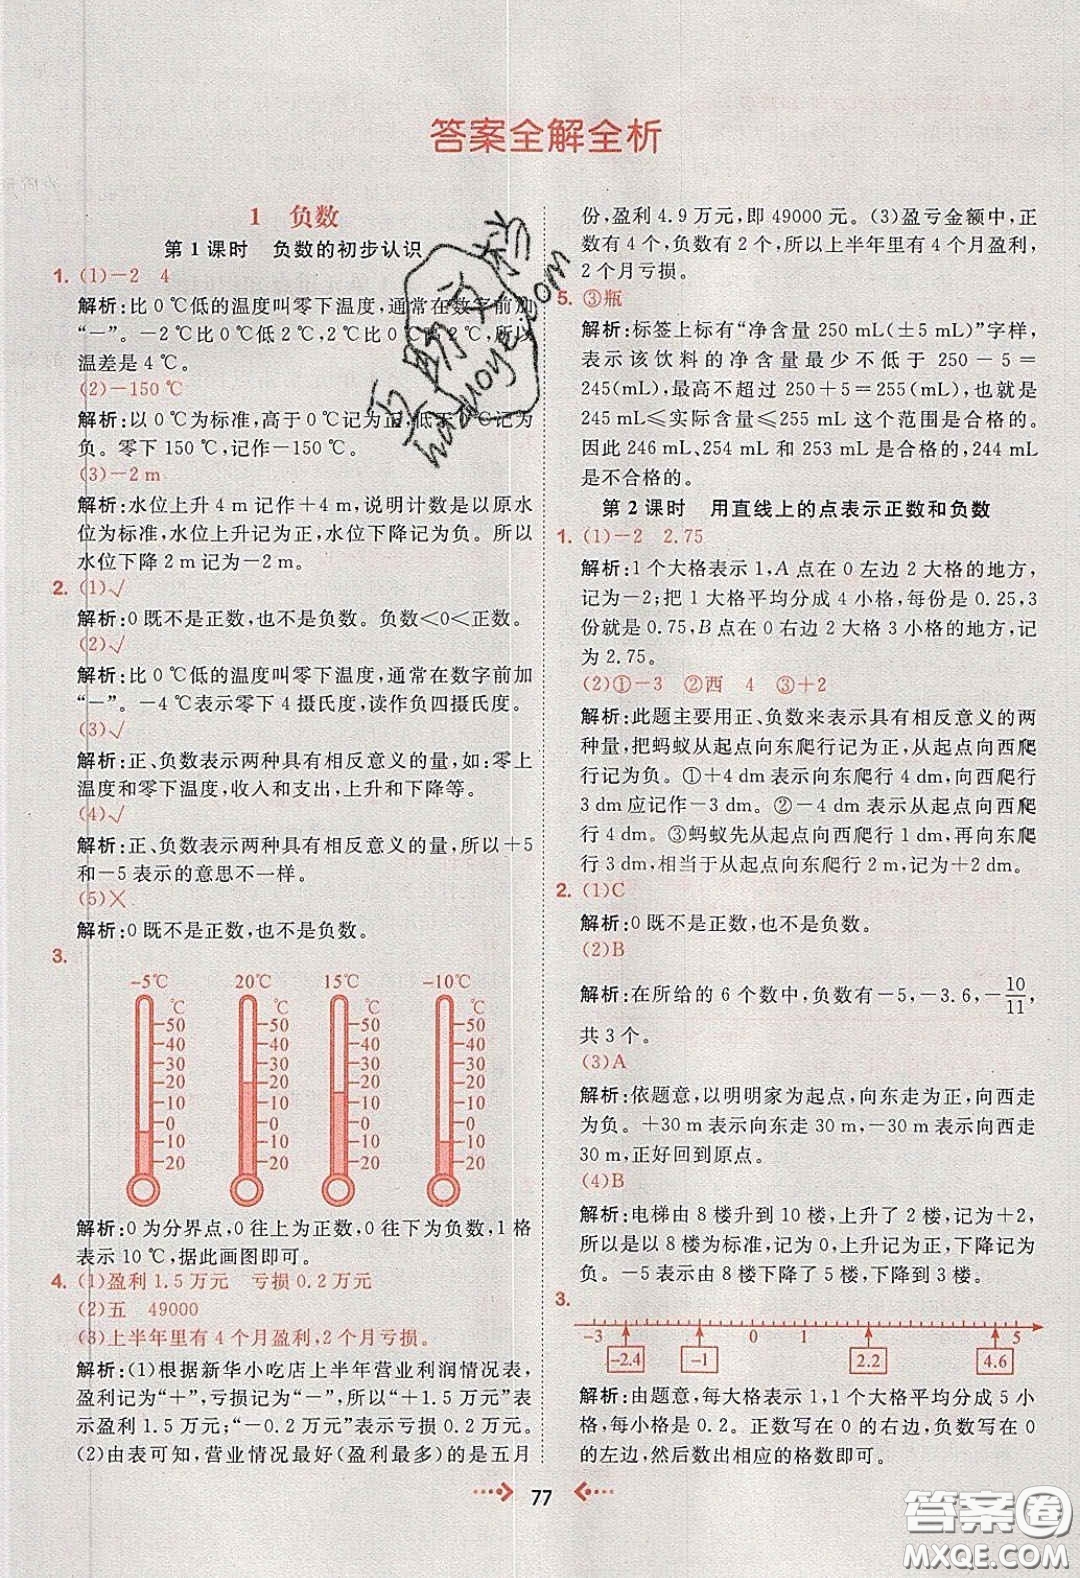 答案全解全析
1 负数
第1课时 负数的初步认识
1. (1)-2 4
解析:比0℃低的温度叫零下温度,通常在数字前加
“-”。-2℃比0℃低2℃,2℃比0℃高2℃,所以
温差是4℃。
(2)-150℃
解析:以0℃为标准,高于0℃记为正,低于0℃记为
负。零下150℃,记作-150℃。
(3)-2m
解析:水位上升4m记作+4m,说明计数是以原水
位为标准,水位上升记为正,水位下降记为负。所以
水位下降2m记为-2m。
2. (1)√
解析:0既不是正数,也不是负数。负数<0<正数。
(2)√
解析:比0℃低的温度叫零下温度,通常在数字前加
“-”。-4℃表示零下4摄氏度,读作负四摄氏度。
(3)√
解析:正、负数表示两种具有相反意义的量,如:零上
温度和零下温度,收入和支出,上升和下降等。
(4)√
解析:正、负数表示两种具有相反意义的量,所以+5
和-5表示的意思不一样。
(5)×
解析:0既不是正数,也不是负数。
3.
-5℃ 20℃ 15℃ -10℃
℃ ℃ ℃ ℃
50 50 50 50
40 40 40 40
30 30 30 30
20 20 20 20
10 10 10 10
0 0 0 0
10 10 10 10
20 20 20 20
解析:0为分界点,0往上为正数,0往下为负数,1格
表示10℃,据此画图即可。
4. (1)盈利1.5万元 亏损0.2万元
(2)五 49000
(3)上半年里有4个月盈利,2个月亏损。
解析:(1)根据新华小吃店上半年营业利润情况表,
盈利记为“+”,亏损记为“-”,所以“+1.5万元”表
示盈利1.5万元;“-0.2万元”表示亏损0.2万元。
(2)由表可知,营业情况最好(盈利最多)的是五月
份,盈利4.9万元,即49000元。(3)盈亏金额中,正
数有4个,负数有2个,所以上半年里有4个月盈利,
2个月亏损。
5. ③瓶
解析:标签上标有“净含量250 mL(±5 mL)”字样,
表示该饮料的净含量最少不低于250-5=
245(mL),最高不超过250+5=255(mL),也就是
245 mL≤实际含量≤255 mL这个范围是合格的。
因此246 mL、254 mL和253 mL是合格的,244 mL
是不合格的。
第2课时 用直线上的点表示正数和负数
1. (1)-2 2.75
解析:1个大格表示1,A点在0左边2大格的地方,
记为-2;把1大格平均分成4小格,每份是0.25,3
份就是0.75,B点在0右边2大格3小格的地方,记
为2.75。
(2)①-3 ②西 4 ③+2
解析:此题主要用正、负数来表示具有相反意义的两
种量,把蚂蚁从起点向东爬行记为正,从起点向西爬
行记为负。①+4 dm表示向东爬行4 dm,向西爬行
3 dm应记作-3 dm。②-4 dm表示从起点向西爬
行4 dm。③蚂蚁先从起点向西爬行1 m,再向东爬
行3 m,相当于从起点向东爬行2 m,记为+2 m。
2. (1)C
解析:0既不是正数,也不是负数。
(2)B
解析:在所给的6个数中,负数有-5,-3.6,-10/11,
共3个。
(3)A
解析:依题意,以明明家为起点,向东走为正,向西走
为负。+30 m表示向东走30 m,-30 m表示向西走
30 m,正好回到原点。
(4)B
解析:电梯由8楼升到10楼,上升了2楼,记为+2,
所以是以8楼为标准,上升记为正,下降记为
负。-5表示由8楼下降了5楼,下降到3楼。
3.
-3 0 1 5
-2.4 -1 2.2 4.6
解析:由题意,每大格表示1,1个大格平均分成5小
格,每小格是0.2。正数写在0的右边,负数写在0
的左边,然后数出相应的格数即可。
77
互助分秒
huzuoye.com
答案圈
MXQE.COM